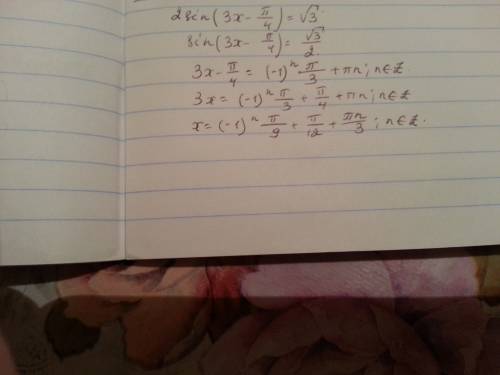 2sin(3x - π/4) = √3.
sin(3x - π/4) = √3/2.
3x - π/4 = (-1)ⁿ · π/3 + πn; n∈Z
3x = (-1)ⁿ π/3 + π/4 + πn; n∈Z
x = (-1)ⁿ π/9 + π/12 + πn/3; n∈Z.